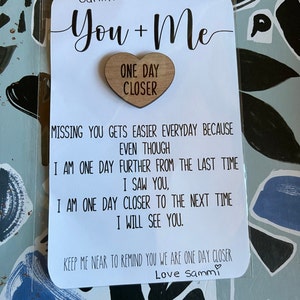 You + Me
ONE DAY
CLOSER
MISSING YOU GETS EASIER EVERYDAY BECAUSE
EVEN THOUGH
I AM ONE DAY FURTHER FROM THE LAST TIME
I SAW YOU,
I AM ONE DAY CLOSER TO THE NEXT TIME
I WILL SEE YOU.
KEEP ME NEAR TO REMIND YOU WE ARE ONE DAY CLOSER
Love Sammi